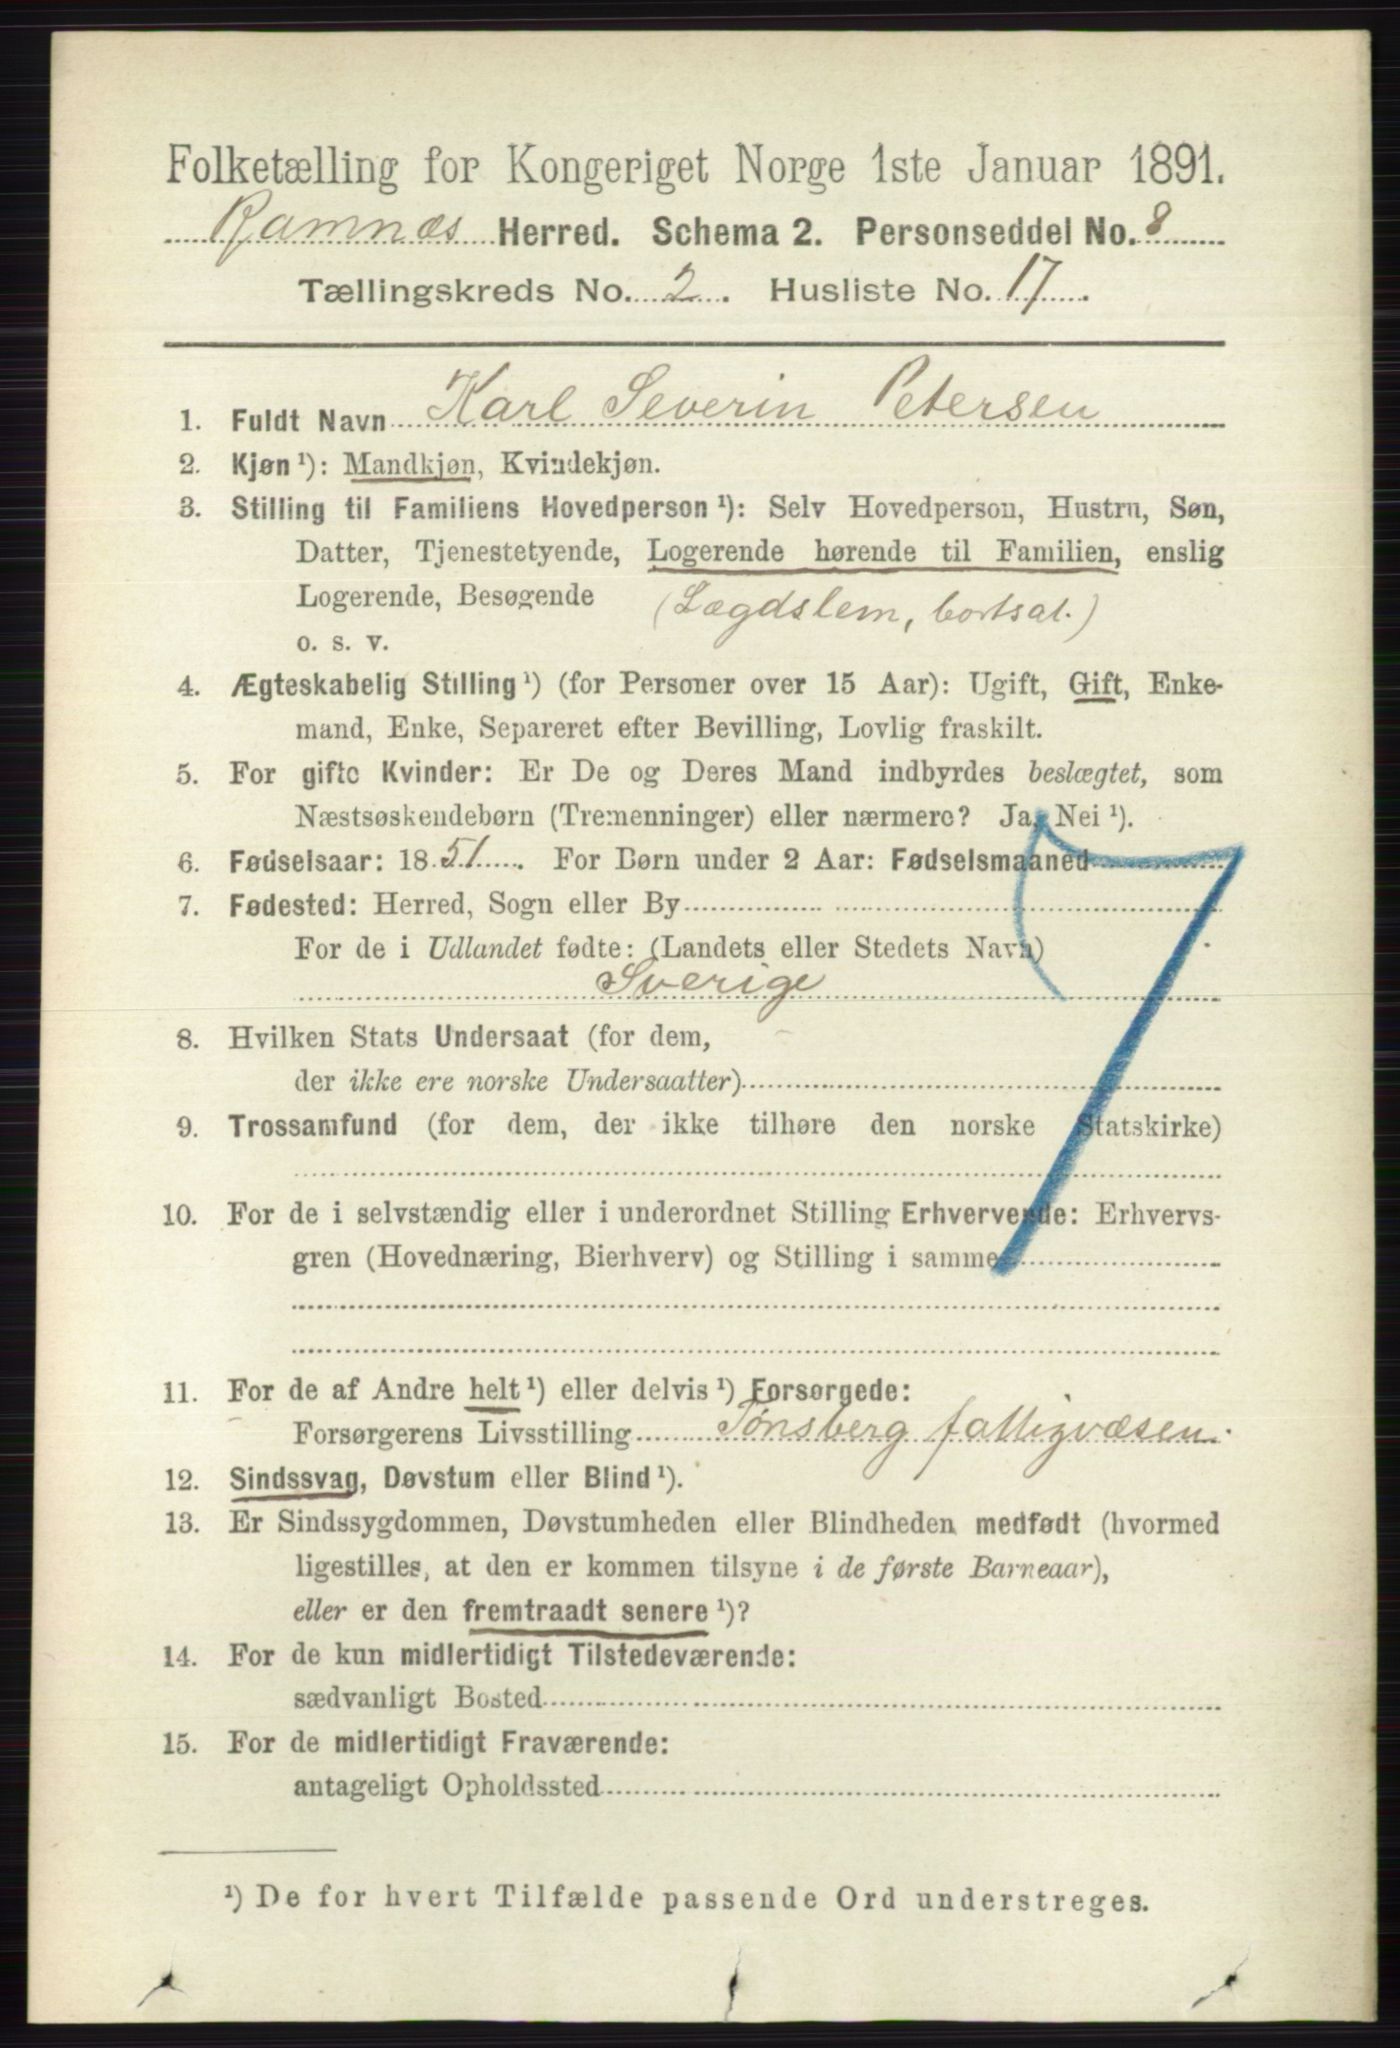 Folketælling for Kongeriget Norge 1ste Januar 1891.
Ramnæs Herred. Schema 2. Personseddel No. 8
Tællingskreds No. 2. Husliste No. 17.
1. Fuldt Navn Karl Severin Petersen
2. Kjøn ¹): Mandkjøn, Kvindekjøn.
3. Stilling til Familiens Hovedperson ¹): Selv Hovedperson, Hustru, Søn,
Datter, Tjenestetyende, Logerende hørende til Familien, enslig
Logerende, Besøgende (Lægdslem, bortsat.)
o. s. v.
4. Ægteskabelig Stilling ¹) (for Personer over 15 Aar): Ugift, Gift, Enke-
mand, Enke, Separeret efter Bevilling, Lovlig fraskilt.
5. For gifte Kvinder: Er De og Deres Mand indbyrdes beslægtet, som
Næstsøskendebørn (Tremenninger) eller nærmere? Ja, Nei ¹).
6. Fødselsaar: 1851. For Børn under 2 Aar: Fødselsmaaned
7. Fødested: Herred, Sogn eller By
For de i Udlandet fødte: (Landets eller Stedets Navn)
Sverige
8. Hvilken Stats Undersaat (for dem,
der ikke ere norske Undersaatter)
9. Trossamfund (for dem, der ikke tilhøre den norske Statskirke)
10. For de i selvstændig eller i underordnet Stilling Erhvervende: Erhvervs-
gren (Hovednæring, Bierhverv) og Stilling i samme
11. For de af Andre helt ¹) eller delvis ¹) Forsørgede:
Forsørgerens Livsstilling Tønsberg fattigvæsen.
12. Sindssvag, Døvstum eller Blind ¹).
13. Er Sindssygdommen, Døvstumheden eller Blindheden medfødt (hvormed
ligestilles, at den er kommen tilsyne i de første Barneaar),
eller er den fremtraadt senere ¹)?
14. For de kun midlertidigt Tilstedeværende:
sædvanligt Bosted
15. For de midlertidigt Fraværende:
antageligt Opholdssted
¹) De for hvert Tilfælde passende Ord understreges.